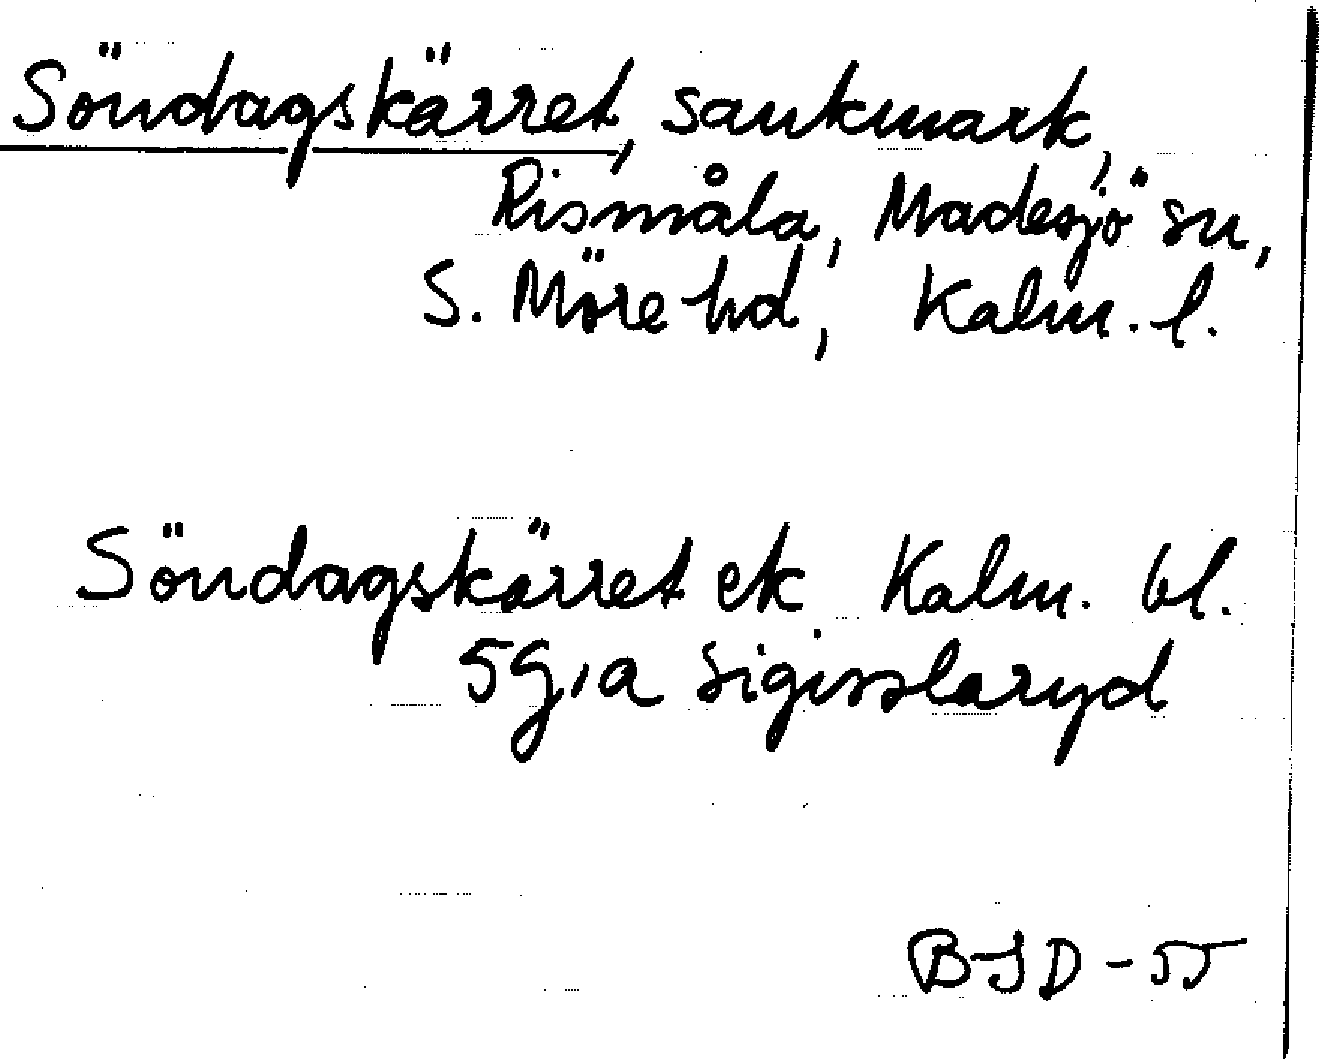 Söndagskärret, sankmark,
Rismåla, Madesjö sn,
S. Möre hd, Kalm. l.
Söndagskärret ek Kalm. bl.
5G, a Sigisslaryd
BJD-55